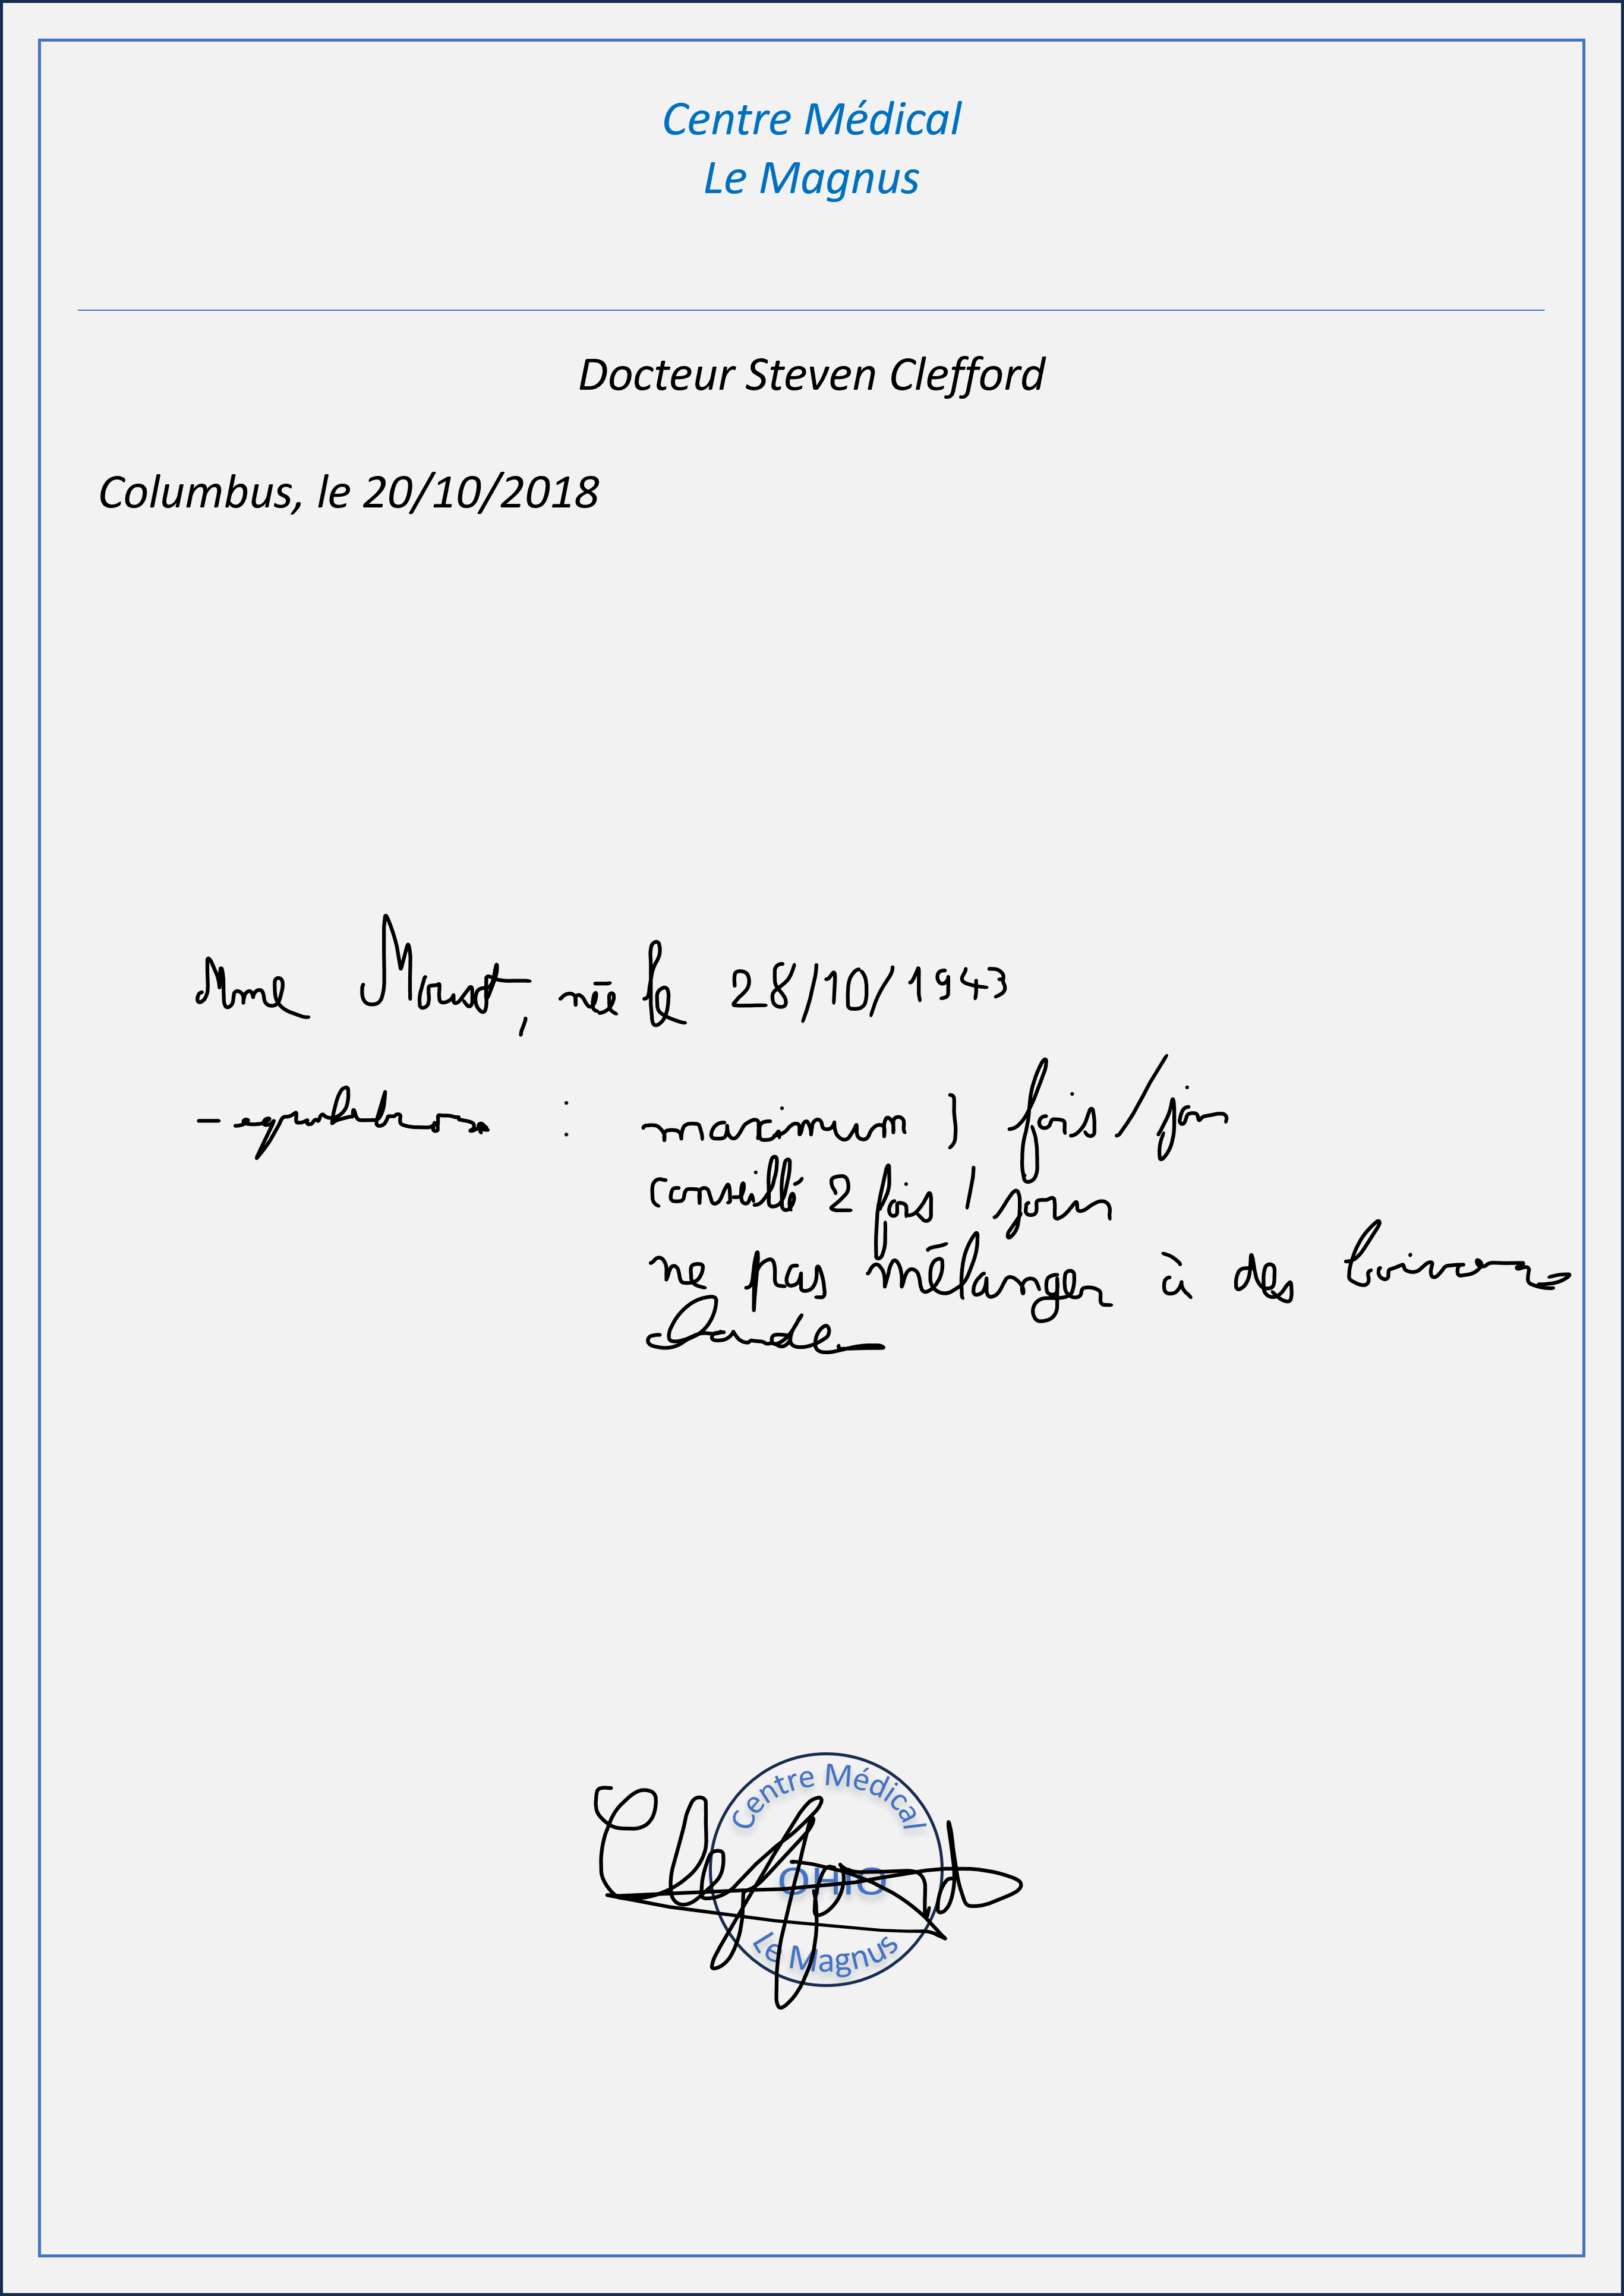 Centre Médical
Le Magnus
Docteur Steven Clefford
Columbus, le 20/10/2018
Mme, né le 28/10/1943
- : maximum fois/jour
conseillé 2 fois / jour
ne pas mélanger à des boissons
chaudes
Centre Médical
OHIO
Le Magnus